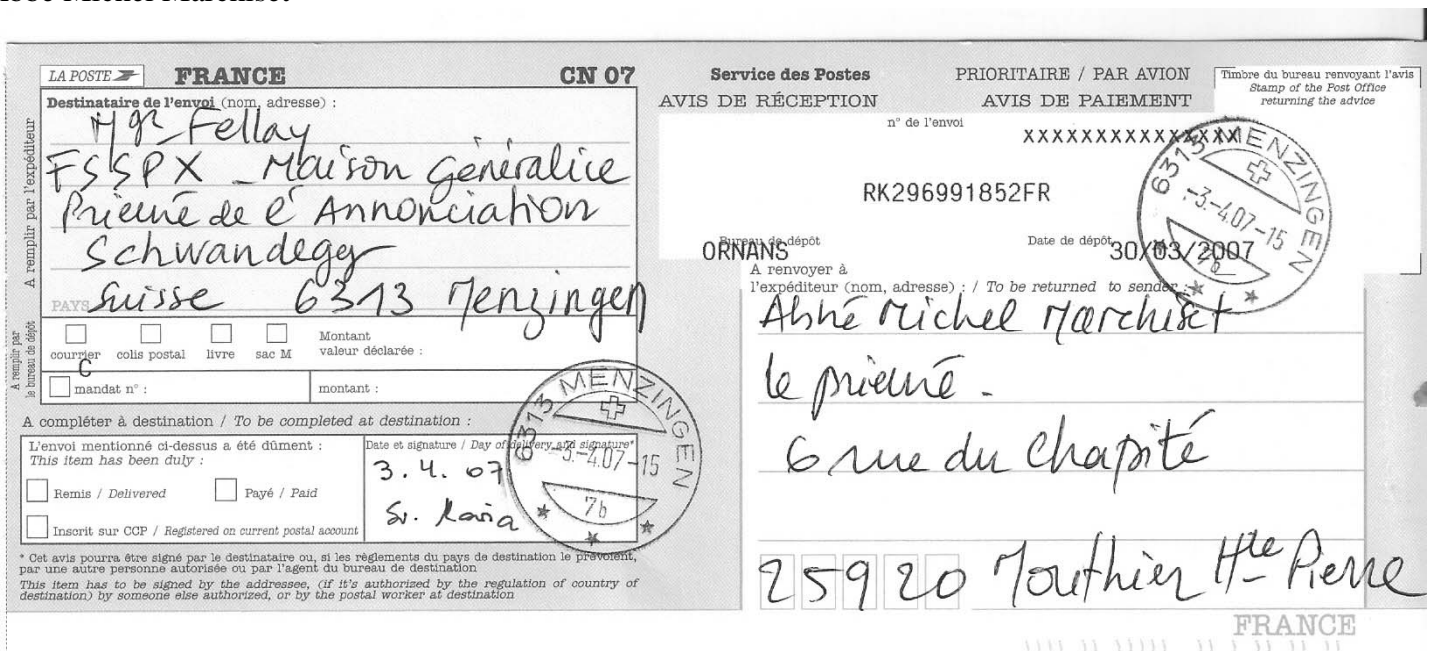 Abbé Michel Marchiset
LA POSTE FRANCE CN 07
Destinataire de l'envoi (nom, adresse) :
Mgr Fellay
FSSPX - Maison Généralice
Prieuré de l'Annonciation
Schwandegg
PAYS Suisse 6313 Menzingen
A remplir par l'expéditeur
A remplir par
le bureau de dépôt
courrier colis postal livre sac M
Montant
valeur déclarée :
C
mandat n° : montant :
A compléter à destination / To be completed at destination :
L'envoi mentionné ci-dessus a été dûment :
This item has been duly :
Remis / Delivered Payé / Paid
Inscrit sur CCP / Registered on current postal account
Date et signature / Day of delivery and signature*
3. 4. 07
Sr. Maria
6313 MENZINGEN
-3.-4.07-15
7b
* Cet avis pourra être signé par le destinataire ou, si les règlements du pays de destination le prévoient,
par une autre personne autorisée ou par l'agent du bureau de destination
This item has to be signed by the addressee, (if it's authorized by the regulation of country of
destination) by someone else authorized, or by the postal worker at destination
Service des Postes PRIORITAIRE / PAR AVION
AVIS DE RÉCEPTION AVIS DE PAIEMENT
Timbre du bureau renvoyant l'avis
Stamp of the Post Office
returning the advice
n° de l'envoi
XXXXXXXXXXXXXXXX
RK296991852FR
6313 MENZINGEN
-3.-4.07-15
7b
Bureau de dépôt Date de dépôt
ORNANS 30/03/2007
A renvoyer à
l'expéditeur (nom, adresse) : / To be returned to sender :
Abbé Michel Marchiset
le prieuré -
6 rue du Chapité
25920 Mouthier Hte Pierre
FRANCE